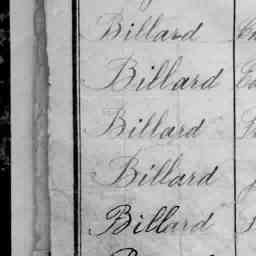 Billard
Billard
Billard
Billard
Billard